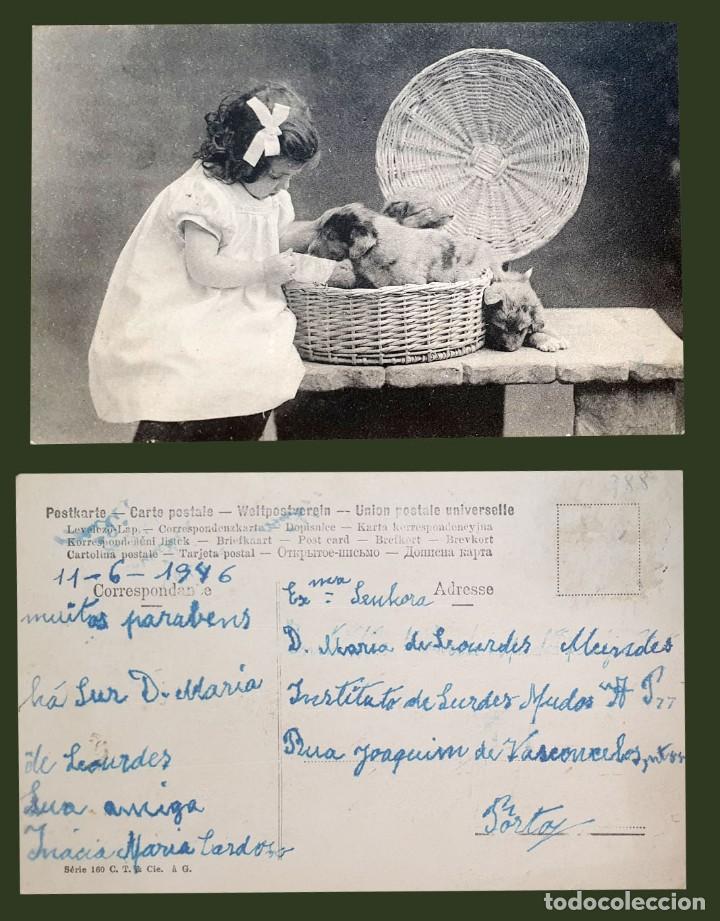 388
Postkarte — Carte postale — Weltpostverein — Union postale universelle
Levelező-Lap. — Correspondenzkarta — Dopisnice — Karta korrespondencyjna
Korrespondenční lístek — Briefkaart — Post card — Brefkort — Brevkort
Cartolina postale — Tarjeta postal — Открытое-письмо — Дописна карта
11-6-1946
Correspondance
Adresse
muitos parabens
há Sur D. Maria
de Lourdes
Sua amiga
Inácia Maria Cardoso
Exma Senhora
D. Maria de Lourdes Meindes
Instituto de Surdos Mudos "A P"
Rua Joaquim de Vasconcelos,
Porto
Série 160 C. T. & Cie. à G.
todocoleccion